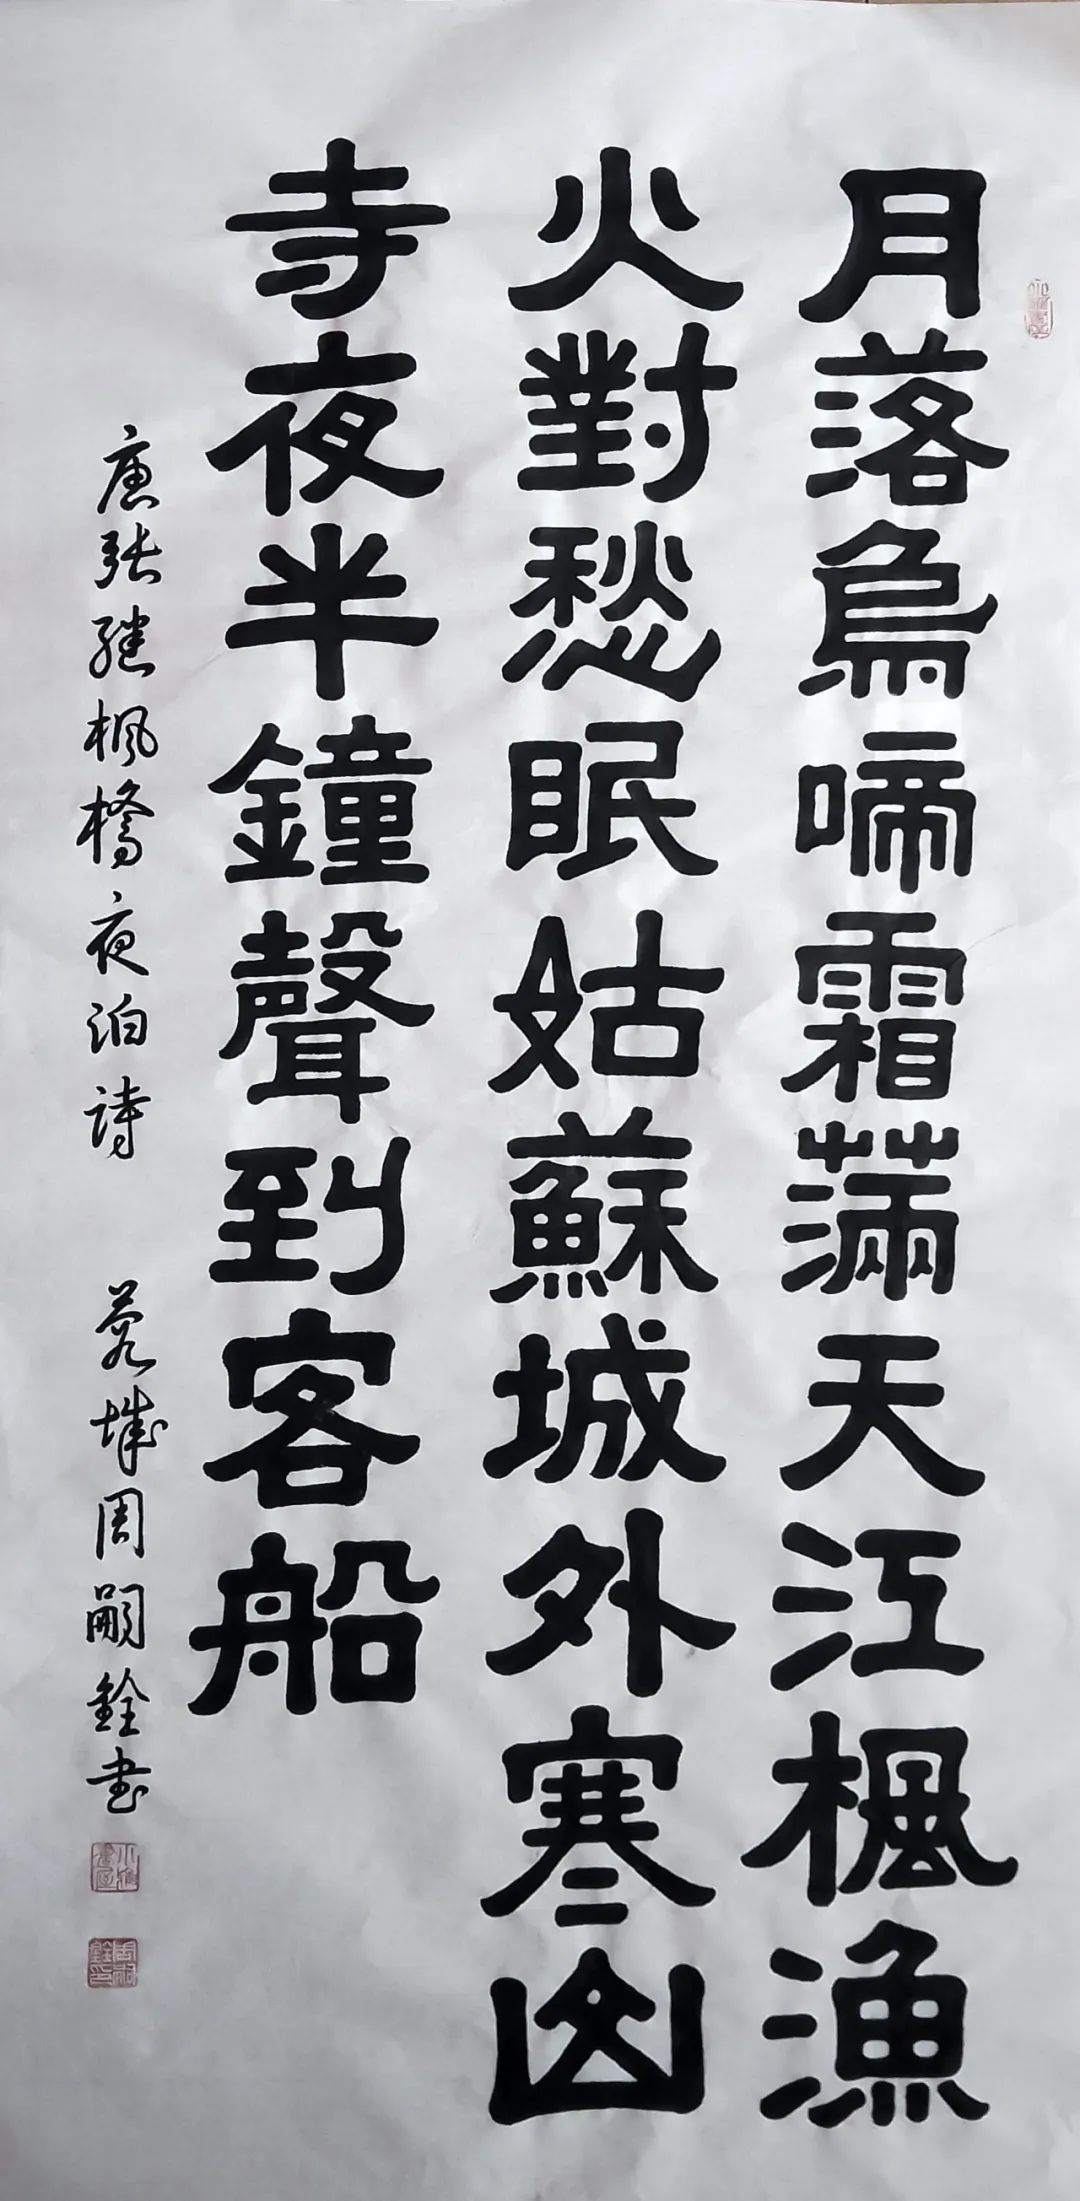 月落烏啼霜滿天江楓漁
火對愁眠姑蘇城外寒山
寺夜半鐘聲到客船
唐張繼楓橋夜泊詩 蓉城周嗣銓书